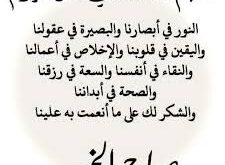 النور في أبصارنا والبصيرة في عقولنا
واليقين في قلوبنا والإخلاص في أعمالنا
والنقاء في أنفسنا والسعة في رزقنا
والصحة في أبداننا
والشكر لك على ما أنعمت به علينا